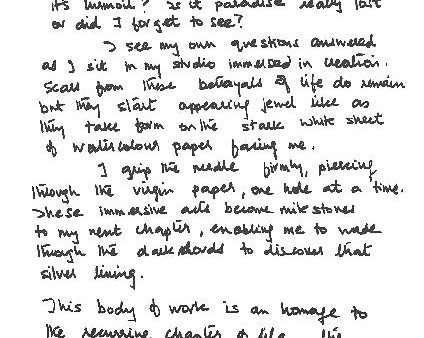 its turmoil? Is it paradise really lost
or did I forget to see?
I see my own questions answered
as I sit in my studio immersed in creation.
Scars from these betrayals of life do remain
but they start appearing jewel like as
they take form on the stark white sheet
of watercolour paper facing me.
I grip the needle firmly, piercing
through the virgin paper, one hole at a time.
These immersive acts become milestones
to my next chapter, enabling me to wade
through the dark shrouds to discover that
silver lining.
This body of work is an homage to
the recurring chapter of life the